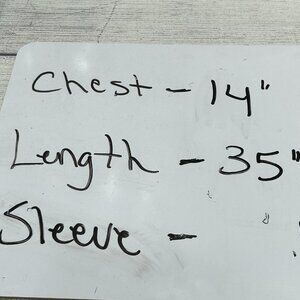 Chest - 14"
Length - 35"
Sleeve -